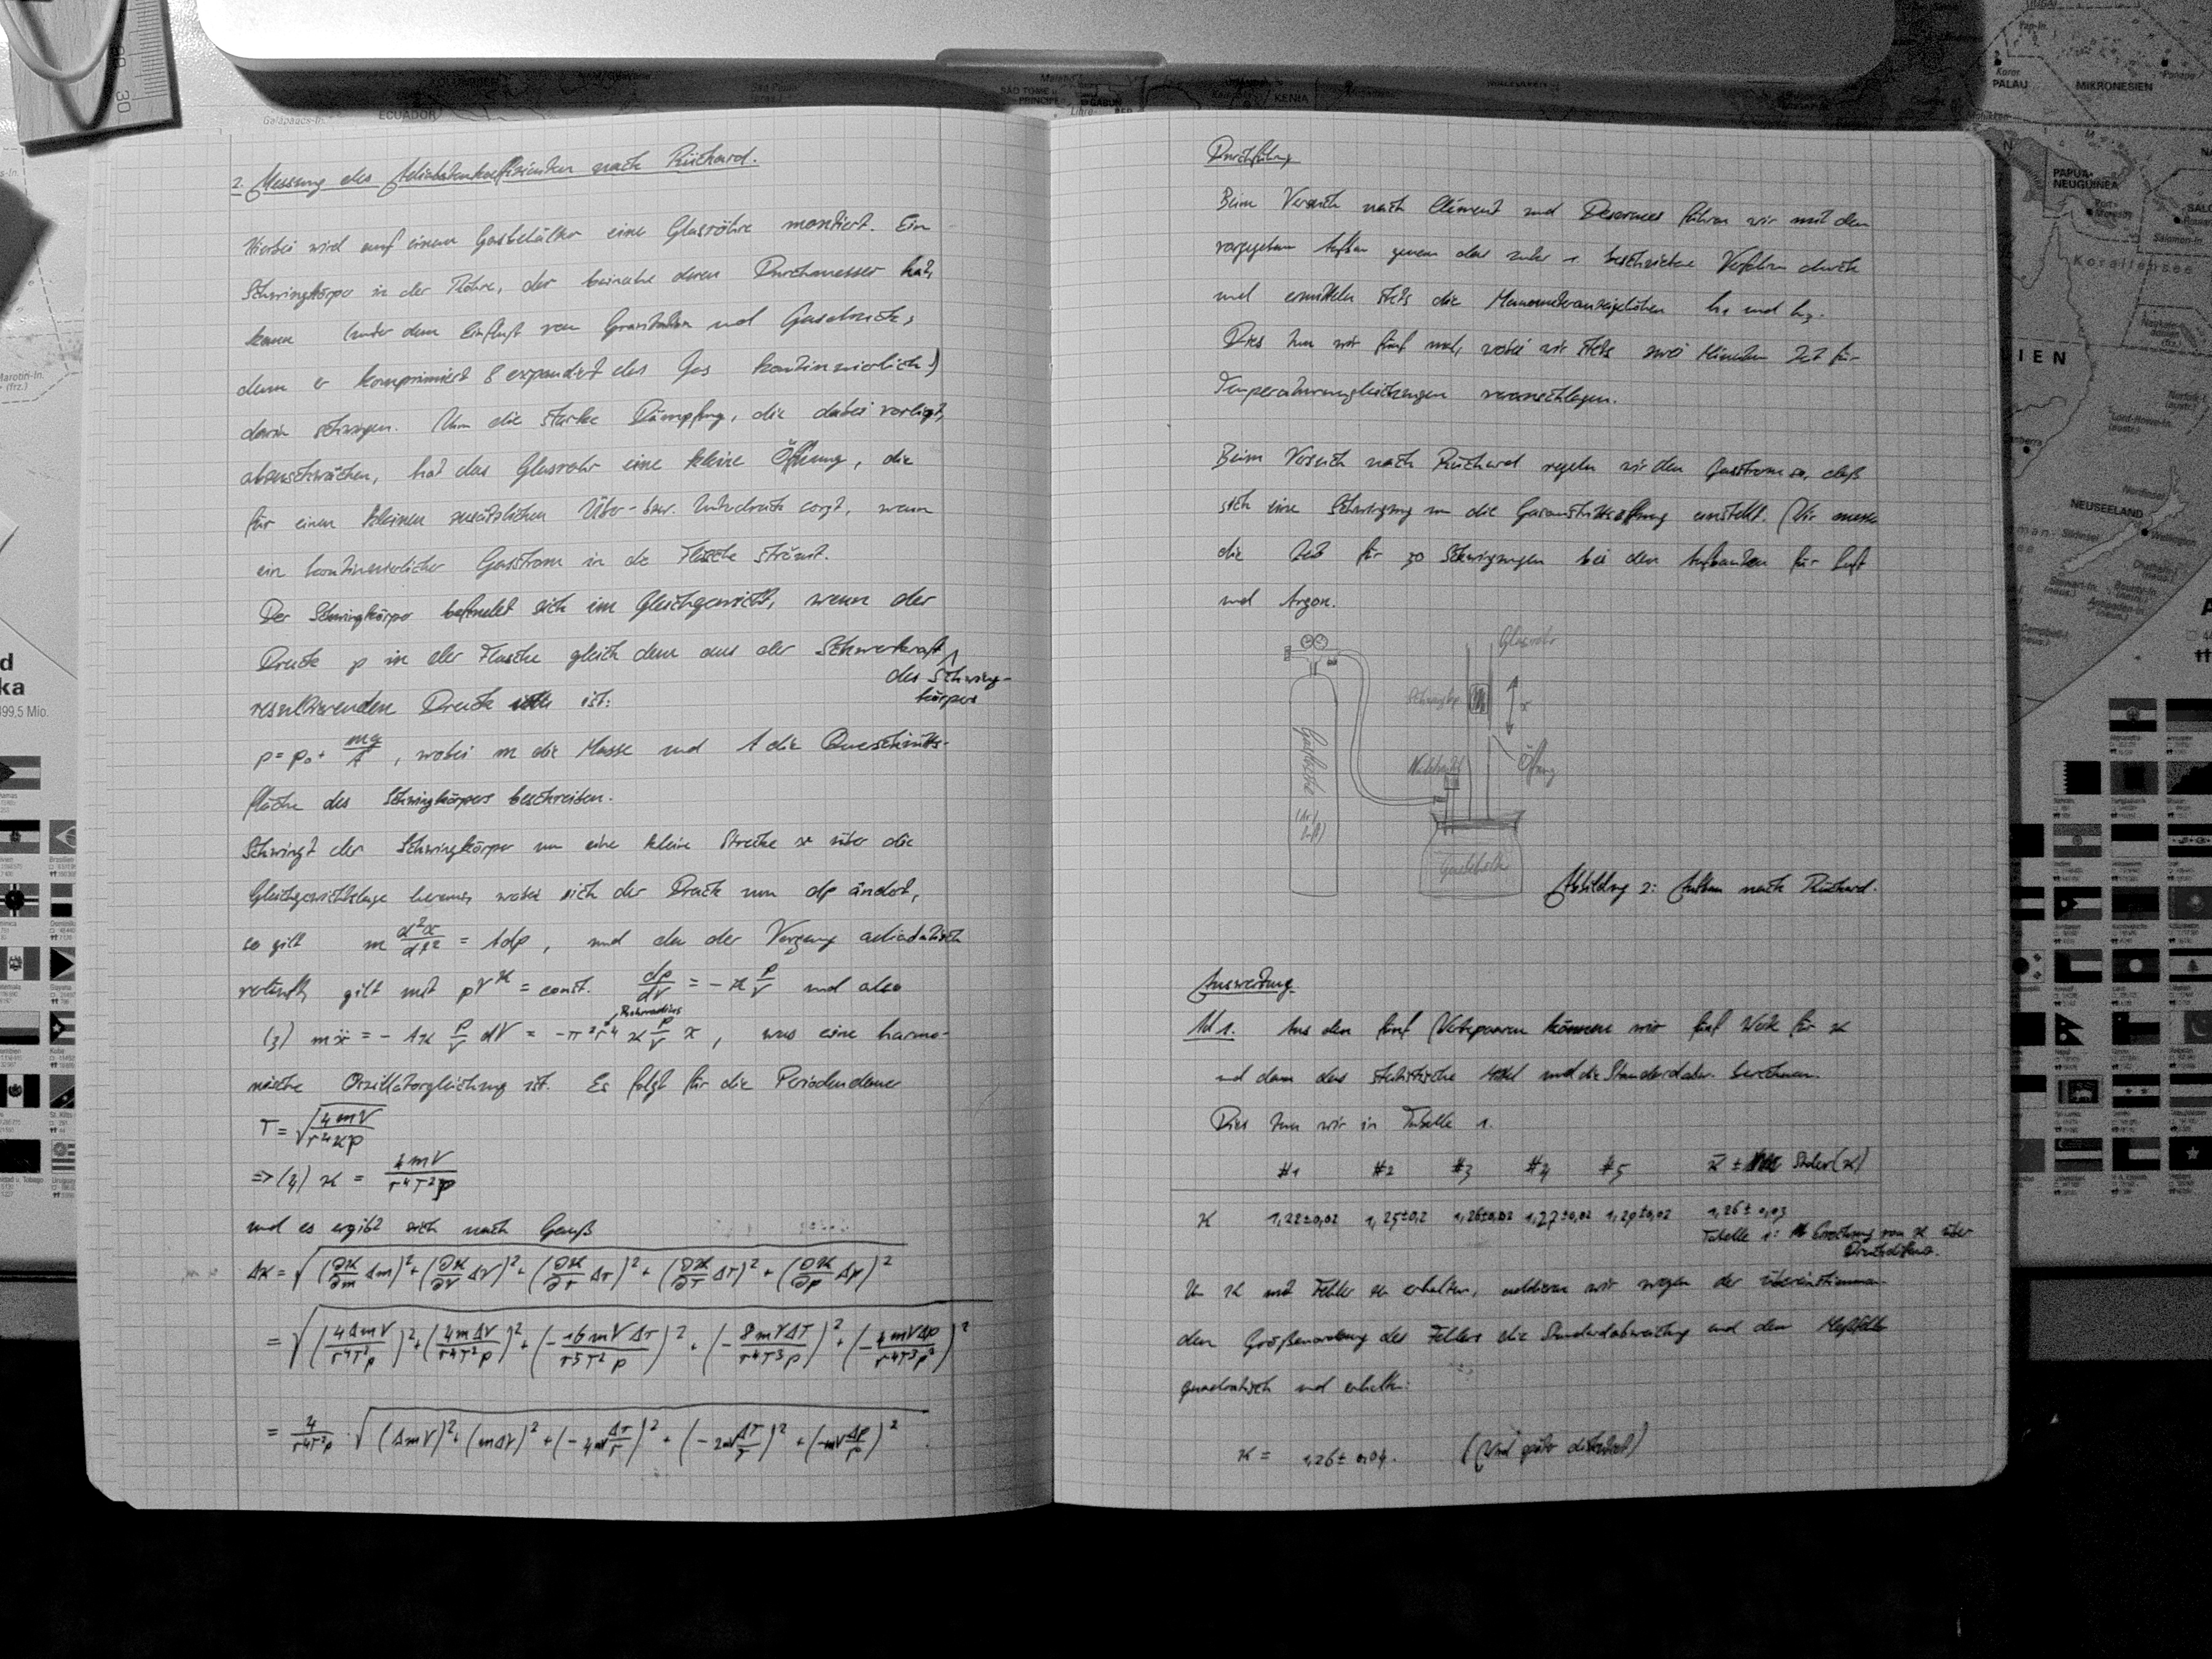 2. Messung des Adiabatenkoeffizienten nach Rüchard.
Hierbei wird auf einen Gasbehälter eine Glasröhre montiert. Ein
Schwingkörper in der Röhre, der beinahe deren Durchmesser hat,
kann (unter dem Einfluß von Gravitation und Gasdruck,
denn er komprimiert & expandiert das Gas kontinuierlich)
darin schwingen. Um die starke Dämpfung, die dabei vorliegt,
abzuschwächen, hat das Glasrohr eine kleine Öffnung, die
für einen kleinen zusätzlichen Über- bzw. Unterdruck sorgt, wenn
ein kontinuierlicher Gasstrom in die Flasche strömt.
Der Schwingkörper befindet sich im Gleichgewicht, wenn der
Druck p in der Flasche gleich dem aus der Schwerkraft
des Schwing-
körpers
resultierenden Druck ist:
p = p₀ + mg/A, wobei m die Masse und A die Querschnitts-
fläche des Schwingkörpers beschreiben.
Schwingt der Schwingkörper um eine kleine Strecke x über die
Gleichgewichtslage heraus, wobei sich der Druck um dp ändert,
so gilt m d²x/dt² = A dp, und da der Vorgang adiabatisch
verläuft, gilt mit pV^ϰ = const. dp/dV = -ϰ p/V und also
Rohrradius
(3) mẍ = -Aϰ p/V dV = -π²r⁴ ϰ p/V x, was eine harmo-
nische Oszillatorgleichung ist. Es folgt für die Periodendauer
T = √(4mV/r⁴ϰp)
=> (4) ϰ = 4mV/r⁴T²p
und es ergibt sich nach Gauß
Δϰ = √((∂ϰ/∂m Δm)² + (∂ϰ/∂V ΔV)² + (∂ϰ/∂r Δr)² + (∂ϰ/∂T ΔT)² + (∂ϰ/∂p Δp)²)
= √((4ΔmV/r⁴T²p)² + (4mΔV/r⁴T²p)² + (-16mVΔr/r⁵T²p)² + (-8mVΔT/r⁴T³p)² + (-4mVΔp/r⁴T³p²)²)
= 4/r⁴T²p · √((ΔmV)² + (mΔV)² + (-4mV Δr/r)² + (-2mV ΔT/T)² + (-mV Δp/p)²)
Durchführung
Beim Versuch nach Clément und Desormes führen wir mit dem
vorgegebenen Aufbau genau das unter 1 beschriebene Verfahren durch
und ermitteln stets die Manometeranzeigehöhen h₁ und h₃.
Dies tun wir fünf mal, wobei wir stets zwei Minuten Zeit für
Temperaturangleichungen veranschlagen.
Beim Versuch nach Rüchard regeln wir den Gasstrom so, daß
sich eine Schwingung um die Gasaustrittsöffnung einstellt. Wir messen
die Zeit für 50 Schwingungen bei den Aufbauten für Luft
und Argon.
Glasrohr
Schwingkp.
x
Gasflasche
(Ar/
Luft)
Öffnung
Gasbehält.
Abbildung 2: Aufbau nach Rüchard.
Auswertung
Ad 1. Aus den fünf Wertepaaren können wir fünf Werte für ϰ
und dann das statistische Mittel und die Standardabw. berechnen.
Dies tun wir in Tabelle 1.
#1 #2 #3 #4 #5 ϰ̄ ± Stdev(ϰ)
ϰ 1,22±0,02 1,25±0,2 1,26±0,02 1,27±0,02 1,29±0,02 1,26 ± 0,03
Tabelle 1: Errechnung von ϰ über
Druckdifferenz.
Um ϰ mit Fehler zu erhalten, addieren wir wegen der übereinstimmen-
den Größenordnung des Fehlers die Standardabweichung und den Meßfehler
quadratisch und erhalten:
ϰ = 1,26 ± 0,04. (Wird später diskutiert)
ECUADOR
KENIA
PALAU
MIKRONESIEN
PAPUA-
NEUGUINEA
Korallensee
NEUSEELAND
Wellington
IEN
30
499,5 Mio.